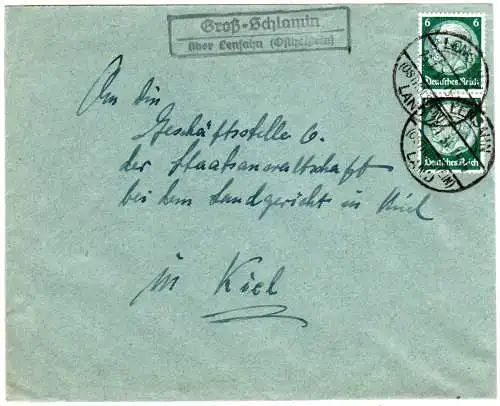 Groß-Schlamin
über Lensahn (Ostholstein)
6
6
Deutsches Reich
Deutsches Reich
LENSAHN
An die
Geschäftsstelle 6.
der Staatsanwaltschaft
bei dem Landgericht in Kiel
in Kiel